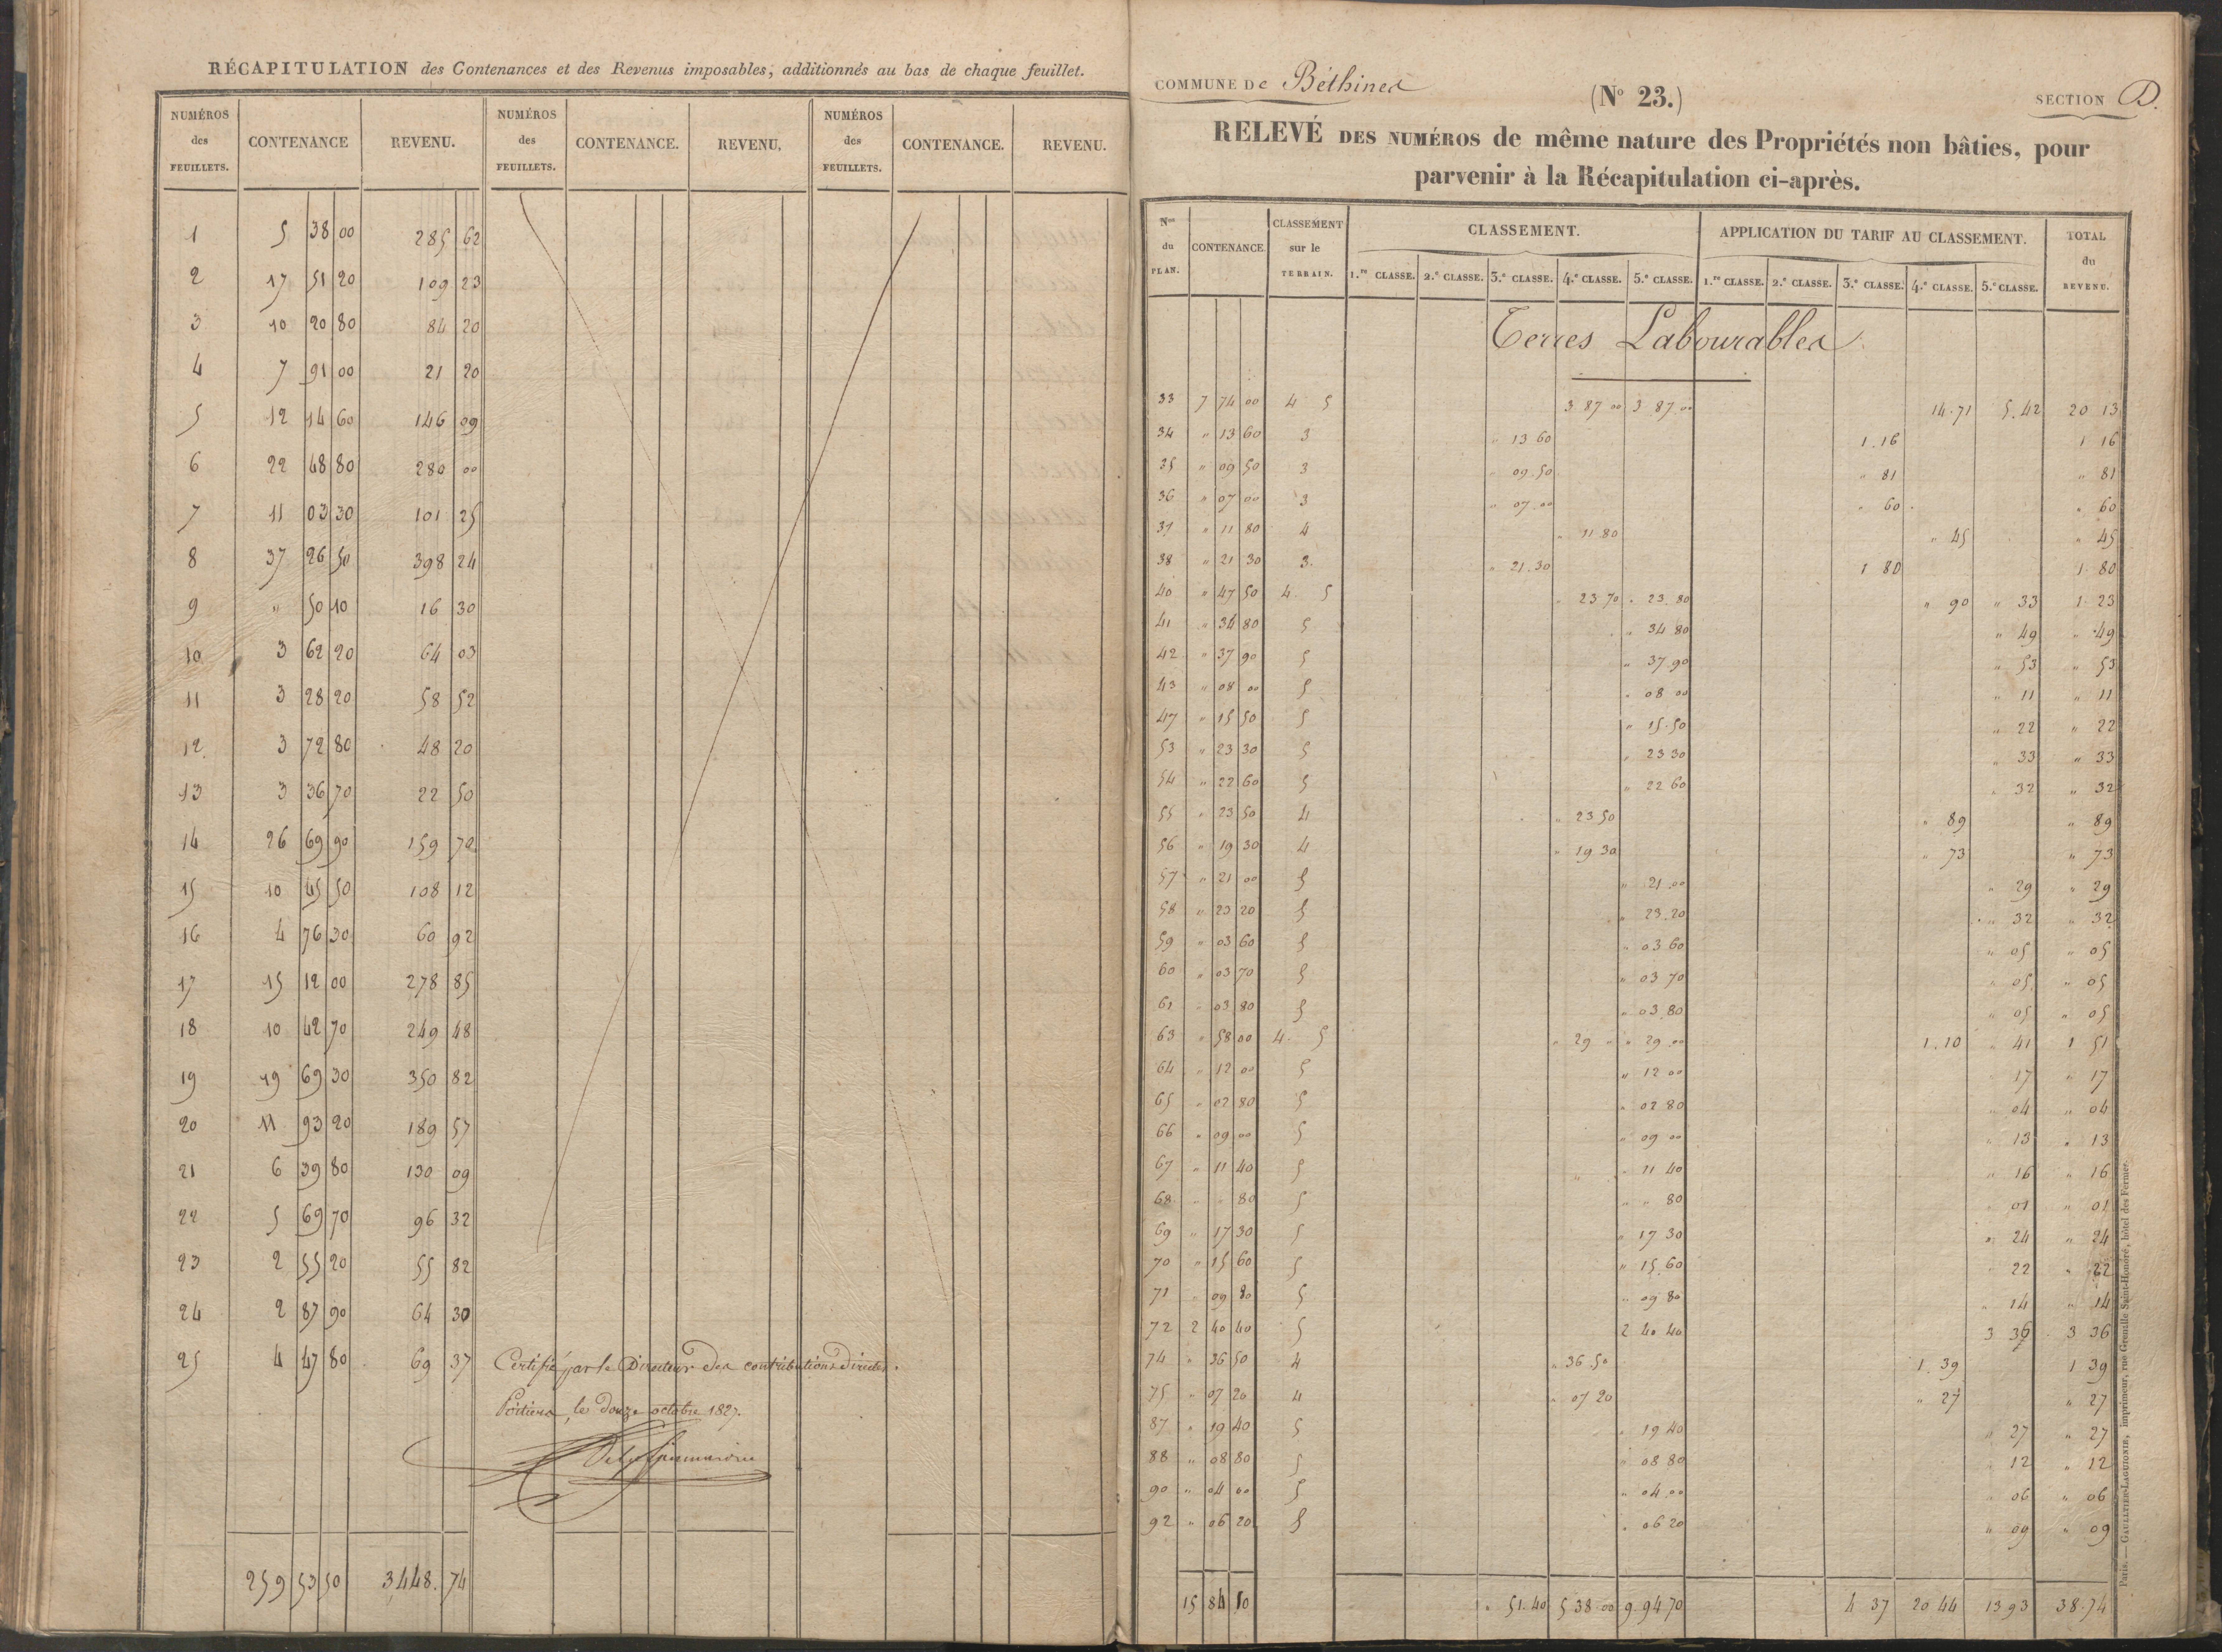 RÉCAPITULATION des Contenances et des Revenus imposables, additionnés au bas de chaque feuillet.
NUMÉROS des FEUILLETS. CONTENANCE REVENU. NUMÉROS des FEUILLETS. CONTENANCE. REVENU, NUMÉROS des FEUILLETS. CONTENANCE. REVENU.
1 5 38 00 285 62
2 17 51 20 109 23
3 10 20 80 84 20
4 7 91 00 21 20
5 12 14 60 146 09
6 22 48 80 280 00
7 11 03 30 101 25
8 37 26 50 398 24
9 " 50 10 16 30
10 3 62 20 64 03
11 3 28 20 58 52
12 3 72 80 48 20
13 3 36 70 22 50
14 26 69 90 159 70
15 10 45 50 108 12
16 4 76 30 60 92
17 15 12 00 278 85
18 10 42 70 249 48
19 19 69 30 350 82
20 11 93 20 189 57
21 6 39 80 130 09
22 5 69 70 96 32
23 2 55 20 55 82
24 2 87 90 64 30
25 4 47 80 69 37
Certifié par le Directeur des contributions directes.
Poitiers, le douze octobre 1827.
259 53 50 3448. 74
COMMUNE De Béthines
(No 23.)
SECTION D.
RELEVÉ DES NUMÉROS de même nature des Propriétés non bâties, pour
parvenir à la Récapitulation ci-après.
Nos du PLAN. CONTENANCE. CLASSEMENT sur le TERRAIN. CLASSEMENT. APPLICATION DU TARIF AU CLASSEMENT. TOTAL du REVENU.
1.re CLASSE. 2.e CLASSE. 3.e CLASSE. 4.e CLASSE. 5.e CLASSE. 1.re CLASSE. 2.e CLASSE. 3.e CLASSE. 4.e CLASSE. 5.e CLASSE.
Terres Labourables
33 7 74 00 4 5 3 87 00 3 87 00 14.71 5.42 20 13
34 " 13 60 3 " 13 60 1.16 1 16
35 " 09 50 3 " 09.50 " 81 " 81
36 " 07 00 3 " 07.00 " 60 " 60
37 " 11 80 4 " 11.80 " 45 " 45
38 " 21 30 3. " 21.30 1 80 1. 80
40 " 47 50 4. 5 " 23 70 " 23.80 " 90 " 33 1. 23
41 " 34 80 5 " 34 80 " 49 " 49
42 " 37 90 5 " 37.90 " 53 " 53
43 " 08 00 5 " 08 00 " 11 " 11
47 " 15 50 5 " 15.50 " 22 " 22
53 " 23 30 5 " 23 30 " 33 " 33
54 " 22 60 5 " 22 60 " 32 " 32
55 " 23 50 4 " 23 50 " 89 " 89
56 " 19 30 4 " 19 30 " 73 " 73
57 " 21 00 5 " 21.00 " 29 " 29
58 " 23 20 5 " 23.20 " 32 " 32
59 " 03 60 5 " 03 60 " 05 " 05
60 " 03 70 5 " 03 70 " 05 " 05
61 " 03 80 5 " 03.80 " 05 " 05
63 " 58 00 4. 5 " 29 " " 29.00 1.10 " 41 1 51
64 " 12 00 5 " 12 00 " 17 " 17
65 " 02 80 5 " 02 80 " 04 " 04
66 " 09 00 5 " 09 00 " 13 " 13
67 " 11 40 5 " 11 40 " 16 " 16
68 " " 80 5 " " 80 " 01 " 01
69 " 17 30 5 " 17 30 " 24 " 24
70 " 15 60 5 " 15.60 " 22 " 22
71 " 09 80 5 " 09 80 " 14 " 14
72 2 40 40 5 2 40 40 3 36 3 36
74 " 36 50 4 " 36.50 1.39 1 39
75 " 07 20 4 " 07 20 " 27 " 27
87 " 19 40 5 " 19 40 " 27 " 27
88 " 08 80 5 " 08 80 " 12 " 12
90 " 04 00 5 " 04.00 " 06 " 06
92 " 06 20 5 " 06 20 " 09 " 09
15 84 10 " 51.40 5 38 00 9 94 70 4 37 20 44 13 93 38.74
Paris. — GAULTIER-LAGUIONIE, imprimeur, rue Grenelle Saint-Honoré, hôtel des Fermes.